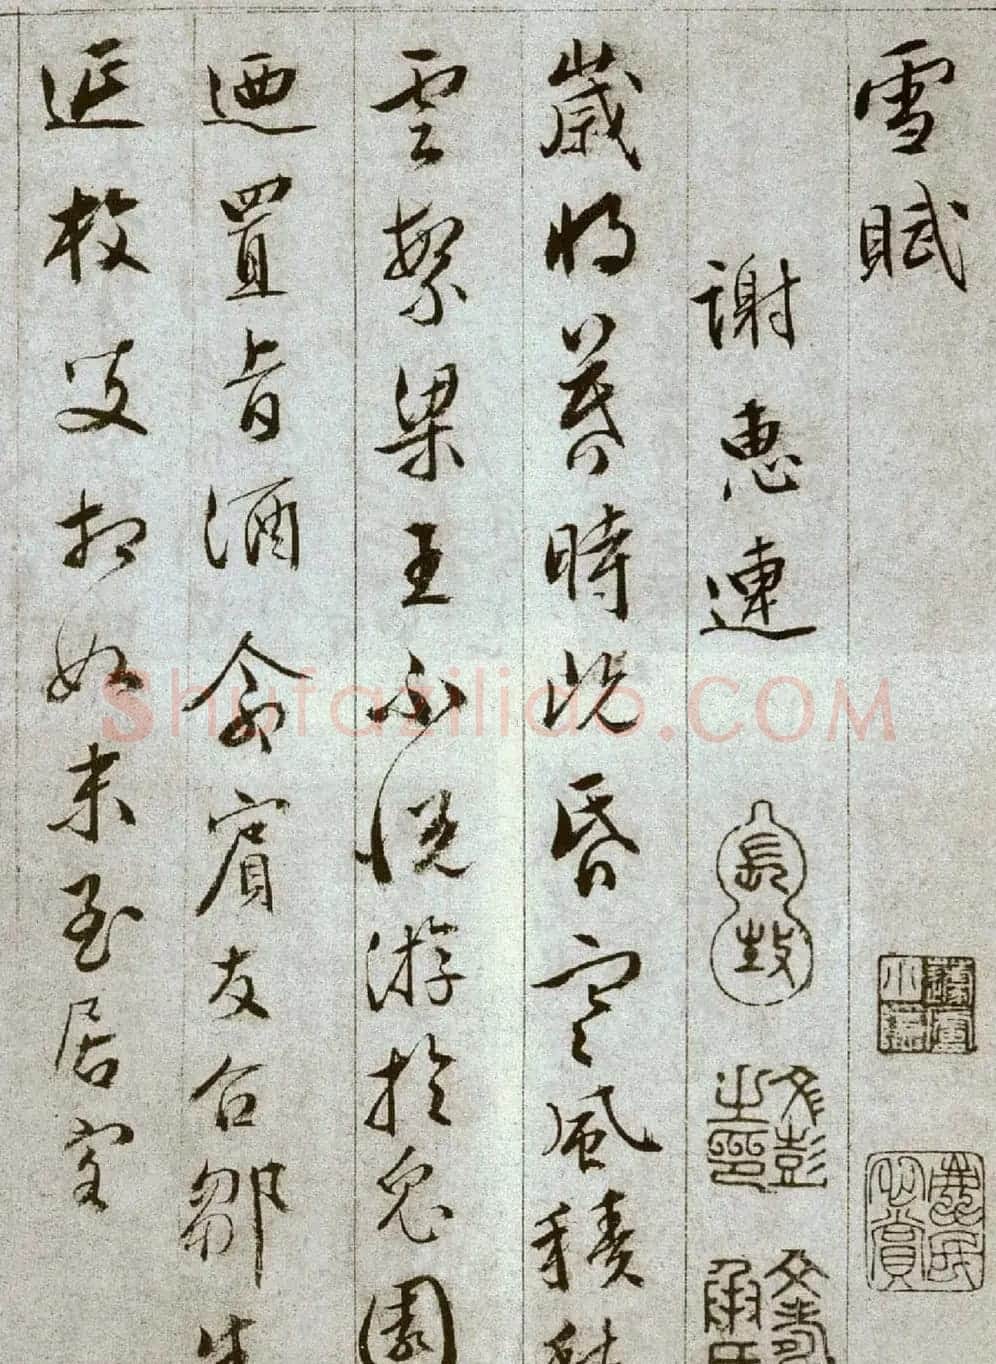 雪賦
謝惠連
文彭之印
文壽承氏
歲將暮時既昏寒風積愁
雲繁梁王不悅游於兔園
迺置旨酒命賓友召鄒生
延枚叟相如末至居客
Shufaziliao.COM